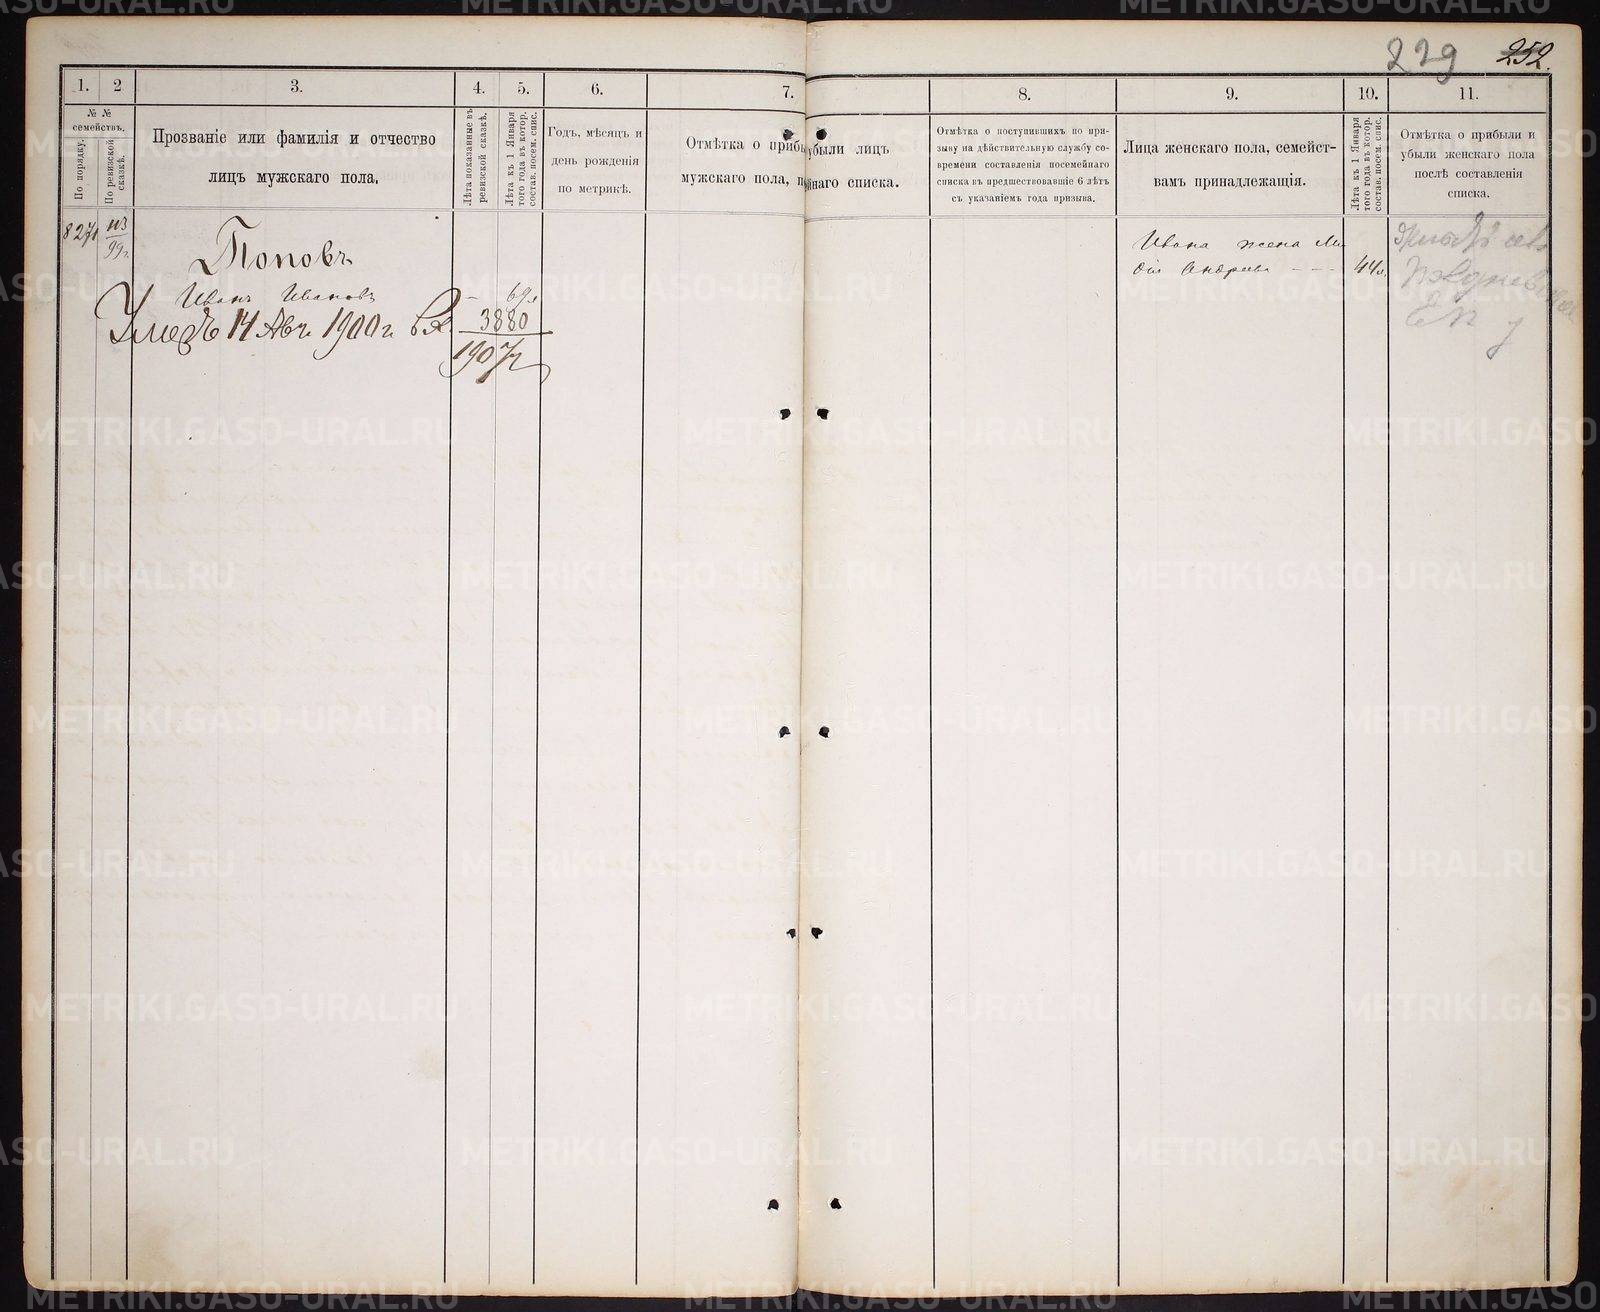 229 252.
1. 2 3. 4. 5. 6. 7. 8. 9. 10. 11.
№ №
семействъ.
По порядку.
По ревизской
сказкѣ.
Прозваніе или фамилія и отчество
лицъ мужскаго пола.
Лѣта показанные въ
ревизской сказкѣ.
Лѣта къ 1 Января
того года въ котор.
состав. посем. спис.
Годъ, мѣсяцъ и
день рожденія
по метрикѣ.
Отмѣтка о прибы
убыли лицъ
мужскаго пола, п
йнаго списка.
Отмѣтка о поступившихъ по при-
зыву на дѣйствительную службу со-
времени составленія посемейнаго
списка въ предшествовавшіе 6 лѣтъ
съ указаніемъ года призыва.
Лица женскаго пола, семейст-
вамъ принадлежащія.
Лѣта къ 1 Января
того года въ котор.
состав. посем. спис.
Отмѣтка о прибыли и
убыли женскаго пола
послѣ составленія
списка.
827 из
99г.
Поповъ
Иванъ Ивановъ - 69л
14 Авг. 1900г. 3880
1907г
Ивана жена Ли
дія Андреева - - - 44л.
METRIKI.GASO-URAL.RU